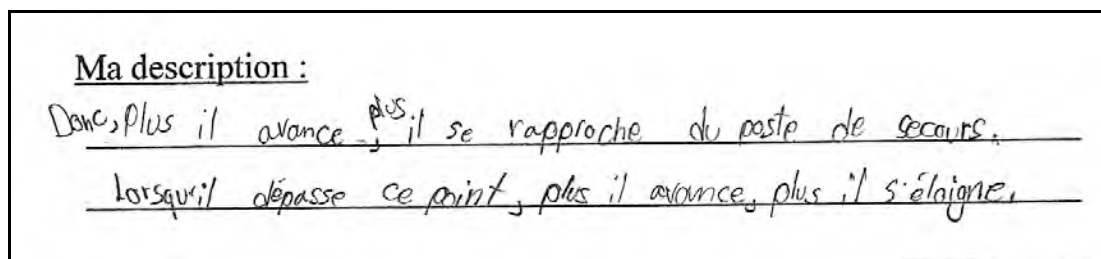 Ma description :
Donc, Plus il avance, plus il se rapproche du poste de secours.
Lorsqu'il dépasse ce point, plus il avance, plus il s'éloigne.